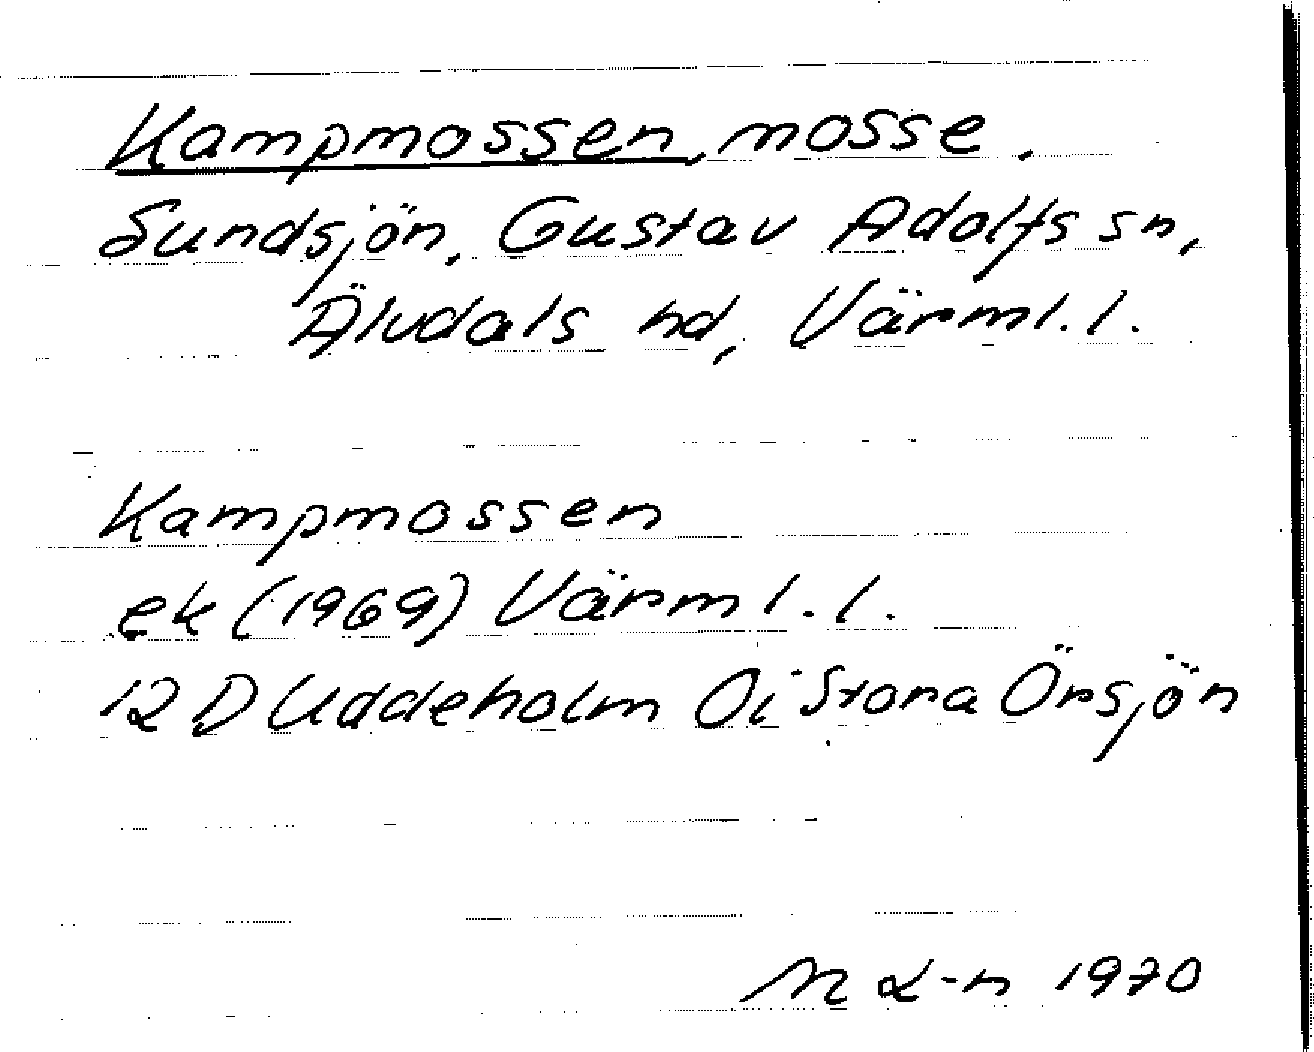 Kampmossen, mosse.
Sundsjön, Gustav Adolfs sn,
Älvdals hd, Värml. l.
Kampmossen
ek (1969) Värml. l.
12 D Uddeholm 0i Stora Örsjön
1970